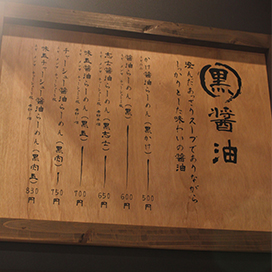 黒醤油
澄んだあっさりスープでありながら
しっかりとした味わいの醤油
かけ醤油らーめん(黒かけ) 500円
志士醤油らーめん(黒志士) 650円
醤油らーめん(黒) 600円
味玉醤油らーめん(黒玉) 700円
チャーシュー醤油らーめん(黒肉) 750円
味玉チャーシュー醤油らーめん(黒肉玉) 830円